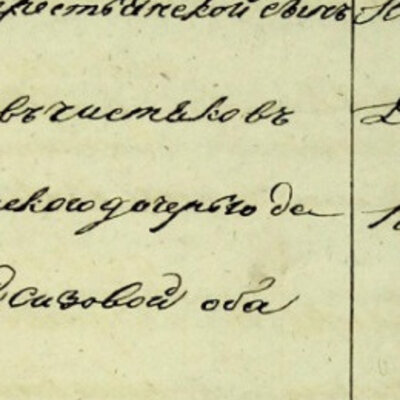 крестьянской сынъ
въ чистяковъ
скою дочерью да
сизовой оба